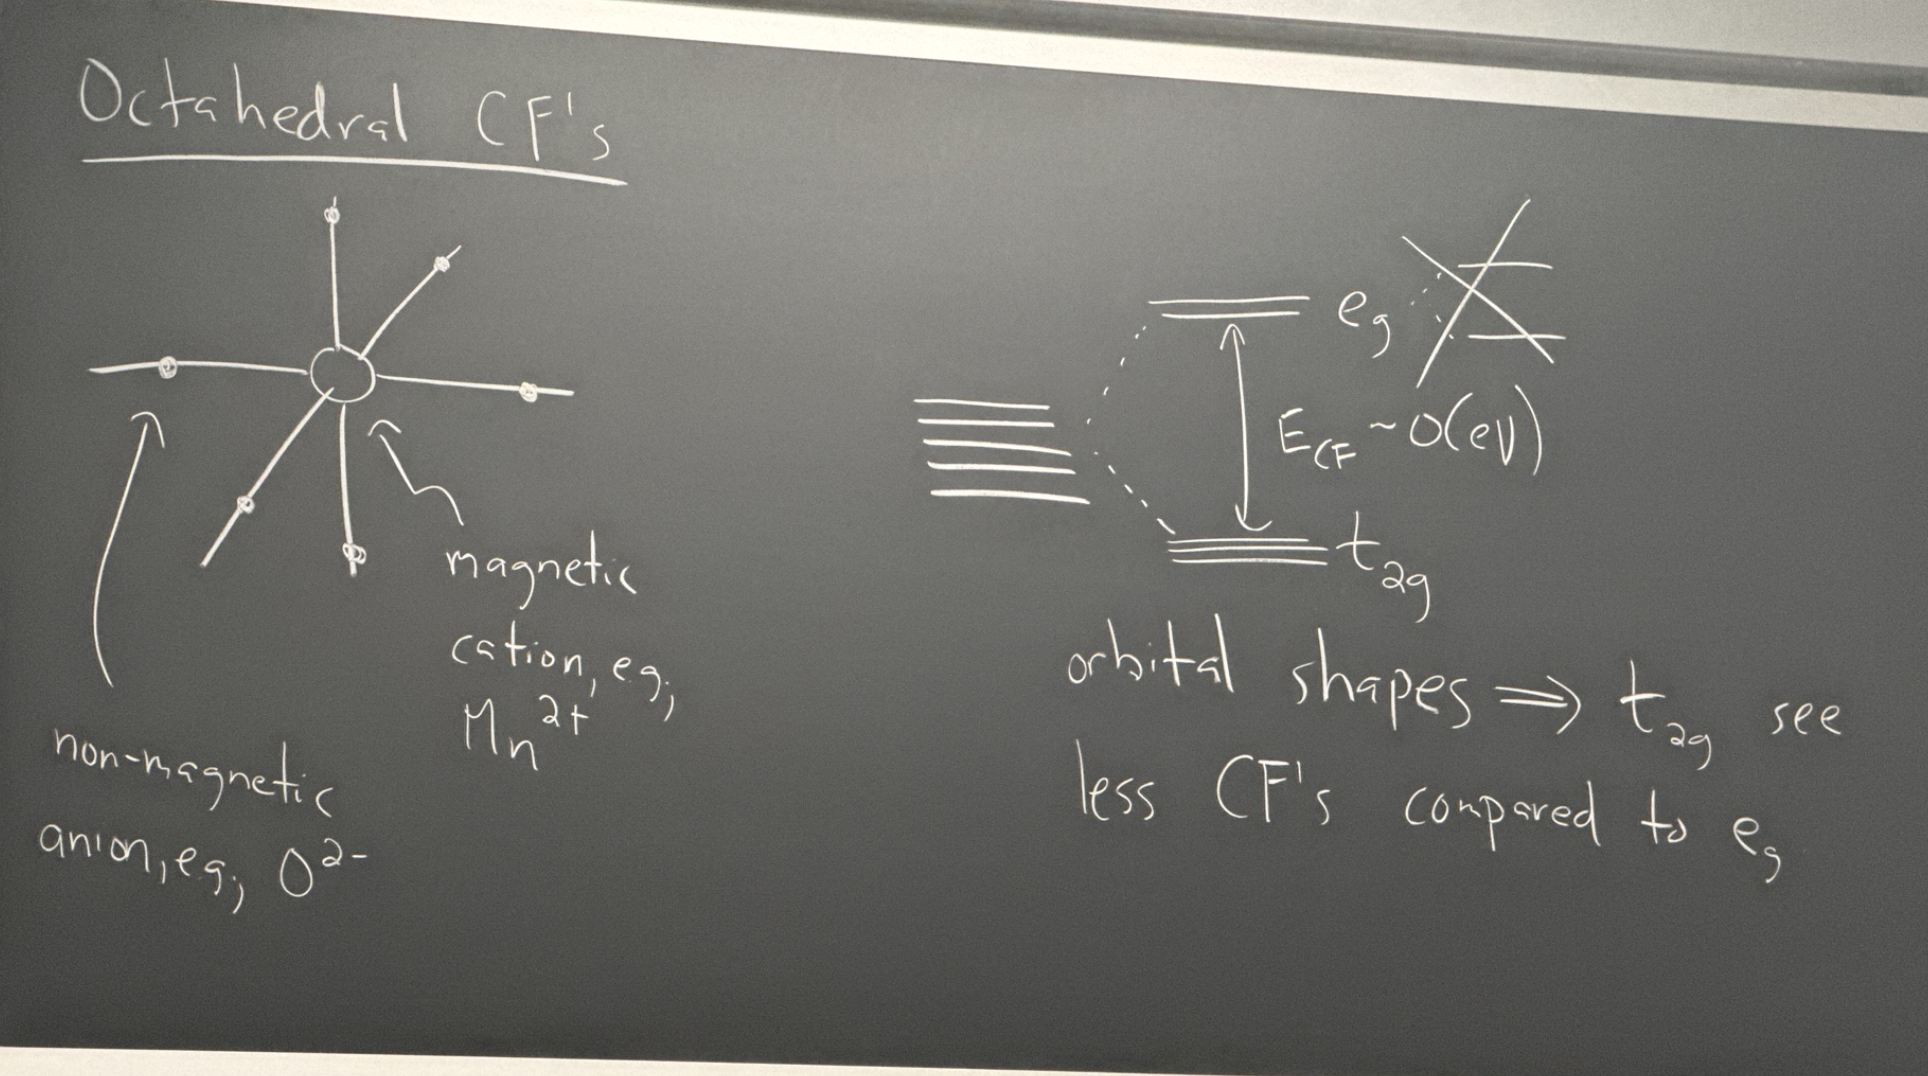 Octahedral CF's
magnetic
cation, e.g.,
Mn²⁺
non-magnetic
anion, e.g., O²⁻
e_g
E_CF ~ O(eV)
t_2g
orbital shapes ⇒ t_2g see
less CF's compared to e_g